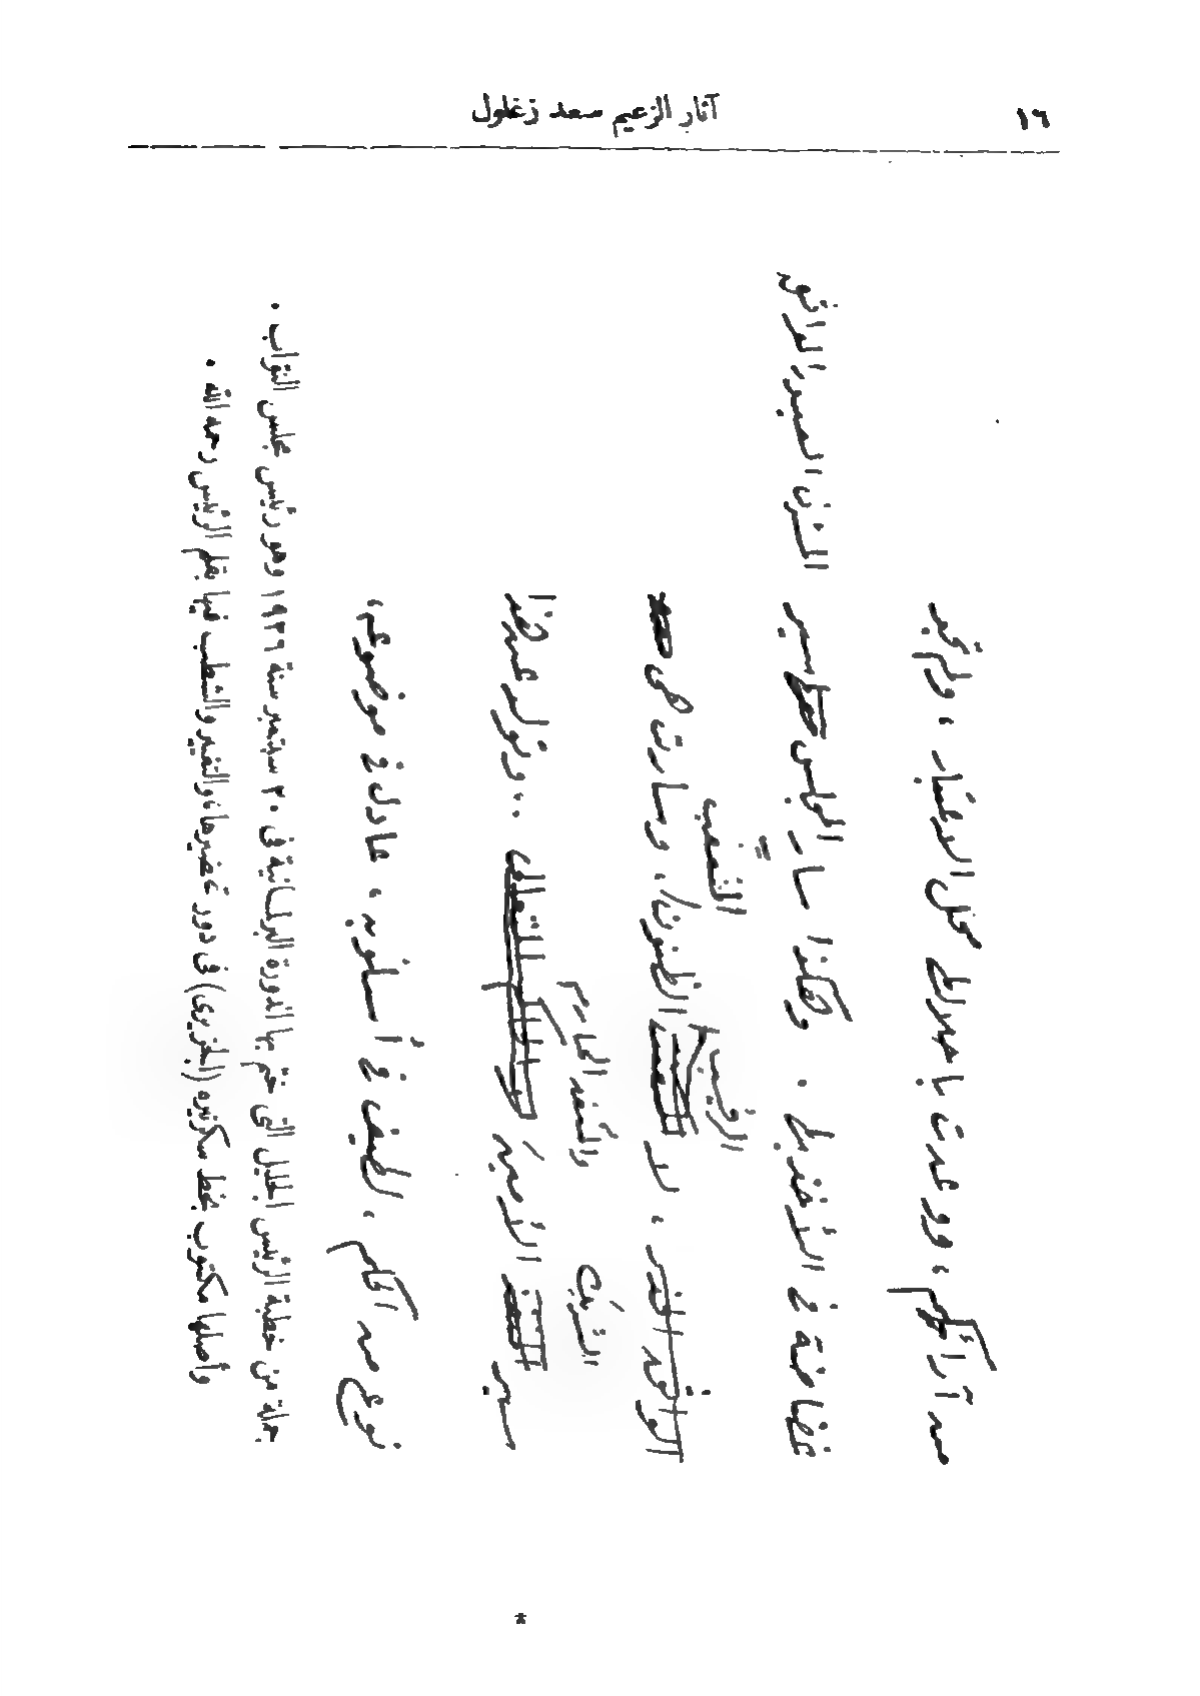 ١٦
آثار الزعيم سعد زغلول
من آرائكم، ووعدت باحلالها محل الاعتبار، ولم تجد
غضاضة في الأخذ بها. وهكذا سار المجلس سير المتزن البصير الواثق
الرقيب
التعصب
الواقف الحذر، لا الظنون، وسارت
الشريف والنقد الحازم
سير الأمين ونزل عند هذا
نوع من الحكم، لطيف في أسلوبه، عادل في موضوعه،
جملة من خطبة الرئيس الجليل التي ختم بها الدورة البرلمانية في ٢٠ سبتمبر سنة ١٩٢٦ وهو رئيس مجلس النواب.
وأصلها مكتوب بخط سكرتيره (الجزيرى) في دور تحضيرها، والتغيير والشطب فيها بقلم الرئيس رحمه الله.
*